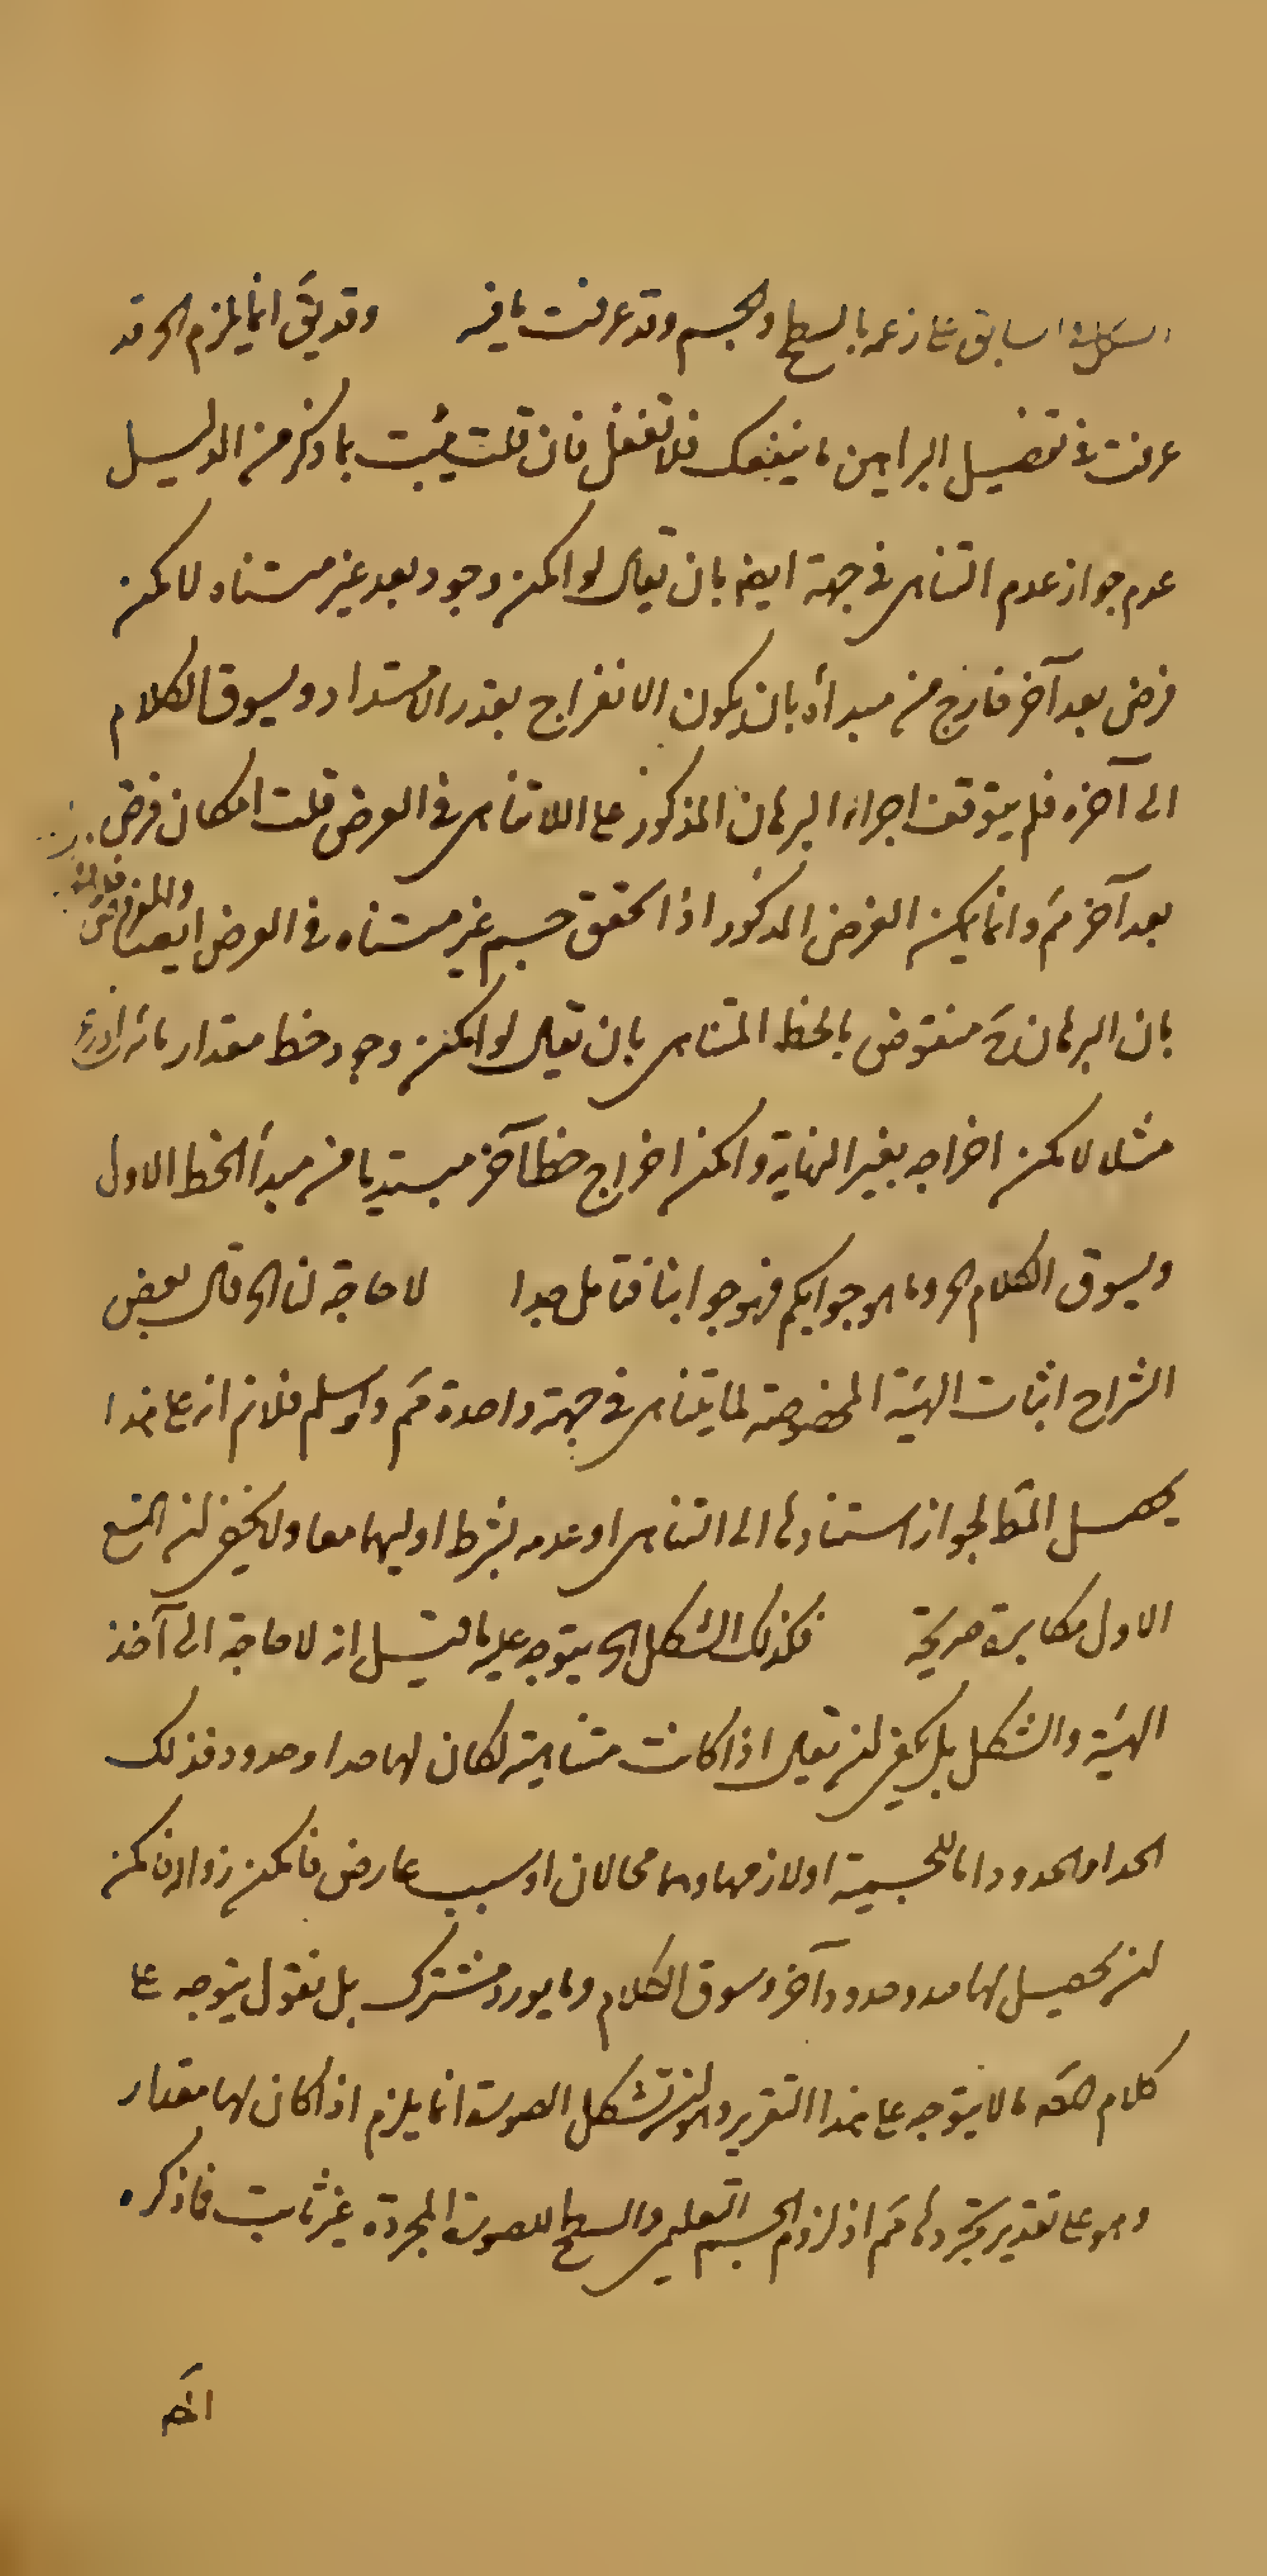 السابق على زعمه بالسطح والجسم وقد عرفت ما فيه وقد يق انما يلزم الخ قد
عرفت في تفصيل البراهين ما ينفعك فلا تغفل فان قلت يثبت بما ذكر من الدليل
عدم جواز عدم التناهى في جهة ايضا بان يقال لو امكن وجود بعد غير متناه لامكن
فرض بعد آخر خارج من مبدأه بان يكون الانفراج بقدر الامتداد ويسوق الكلام
الى آخره فلم يتوقف اجراء البرهان المذكور على اللاتناهى في العرض قلت امكان فرض
بعد آخر مم وانما يمكن الفرض المذكور اذا تحقق جسم غير متناه في العرض ايضا
بان البرهان منقوض بالخط المتناهى بان يقال لو امكن وجود خط مقدار مائة اذرع
مثلا لامكن اخراجه بغير النهاية وامكن اخراج خط آخر مبتديا من مبدأ الخط الاول
ويسوق الكلام الخ وما هو جوابكم فهو جوابنا فتامل جدا لا حاجة لنا الخ قال بعض
الشراح اثبات الهيئة المخصوصة لما يتناهى في جهة واحدة مم ولو سلم فلا نم انه على هذا
يحصل المط لجواز استنادها الى التناهى او عدمه بشرط او اليهما معا ولا يخفى ان المنع
الاول مكابرة صريحة فكذلك الشكل الخ يتوجه عليه ما قيل انه لا حاجة الى آخذ
الهيئة والشكل بل يكفى ان يقال اذا كانت متناهية لكان لها حد او حدود فذلك
الحد او الحدود اما للجسمية او لازمها وهما محالان او بسبب عارض فامكن زواله فامكن
ان يحصل لها حد وحدود آخر وسوق الكلام وما يورد مشترك بل نقول يتوجه على
كلام المصه ما لا يتوجه على هذا التقرير وهو ان تشكل الصورة انما يلزم اذا كان لها مقدار
وهو على تقدير تجردها مم اذ لزوم الجسم التعليمى والسطح للصورة المجردة غير ثابت فما ذكره